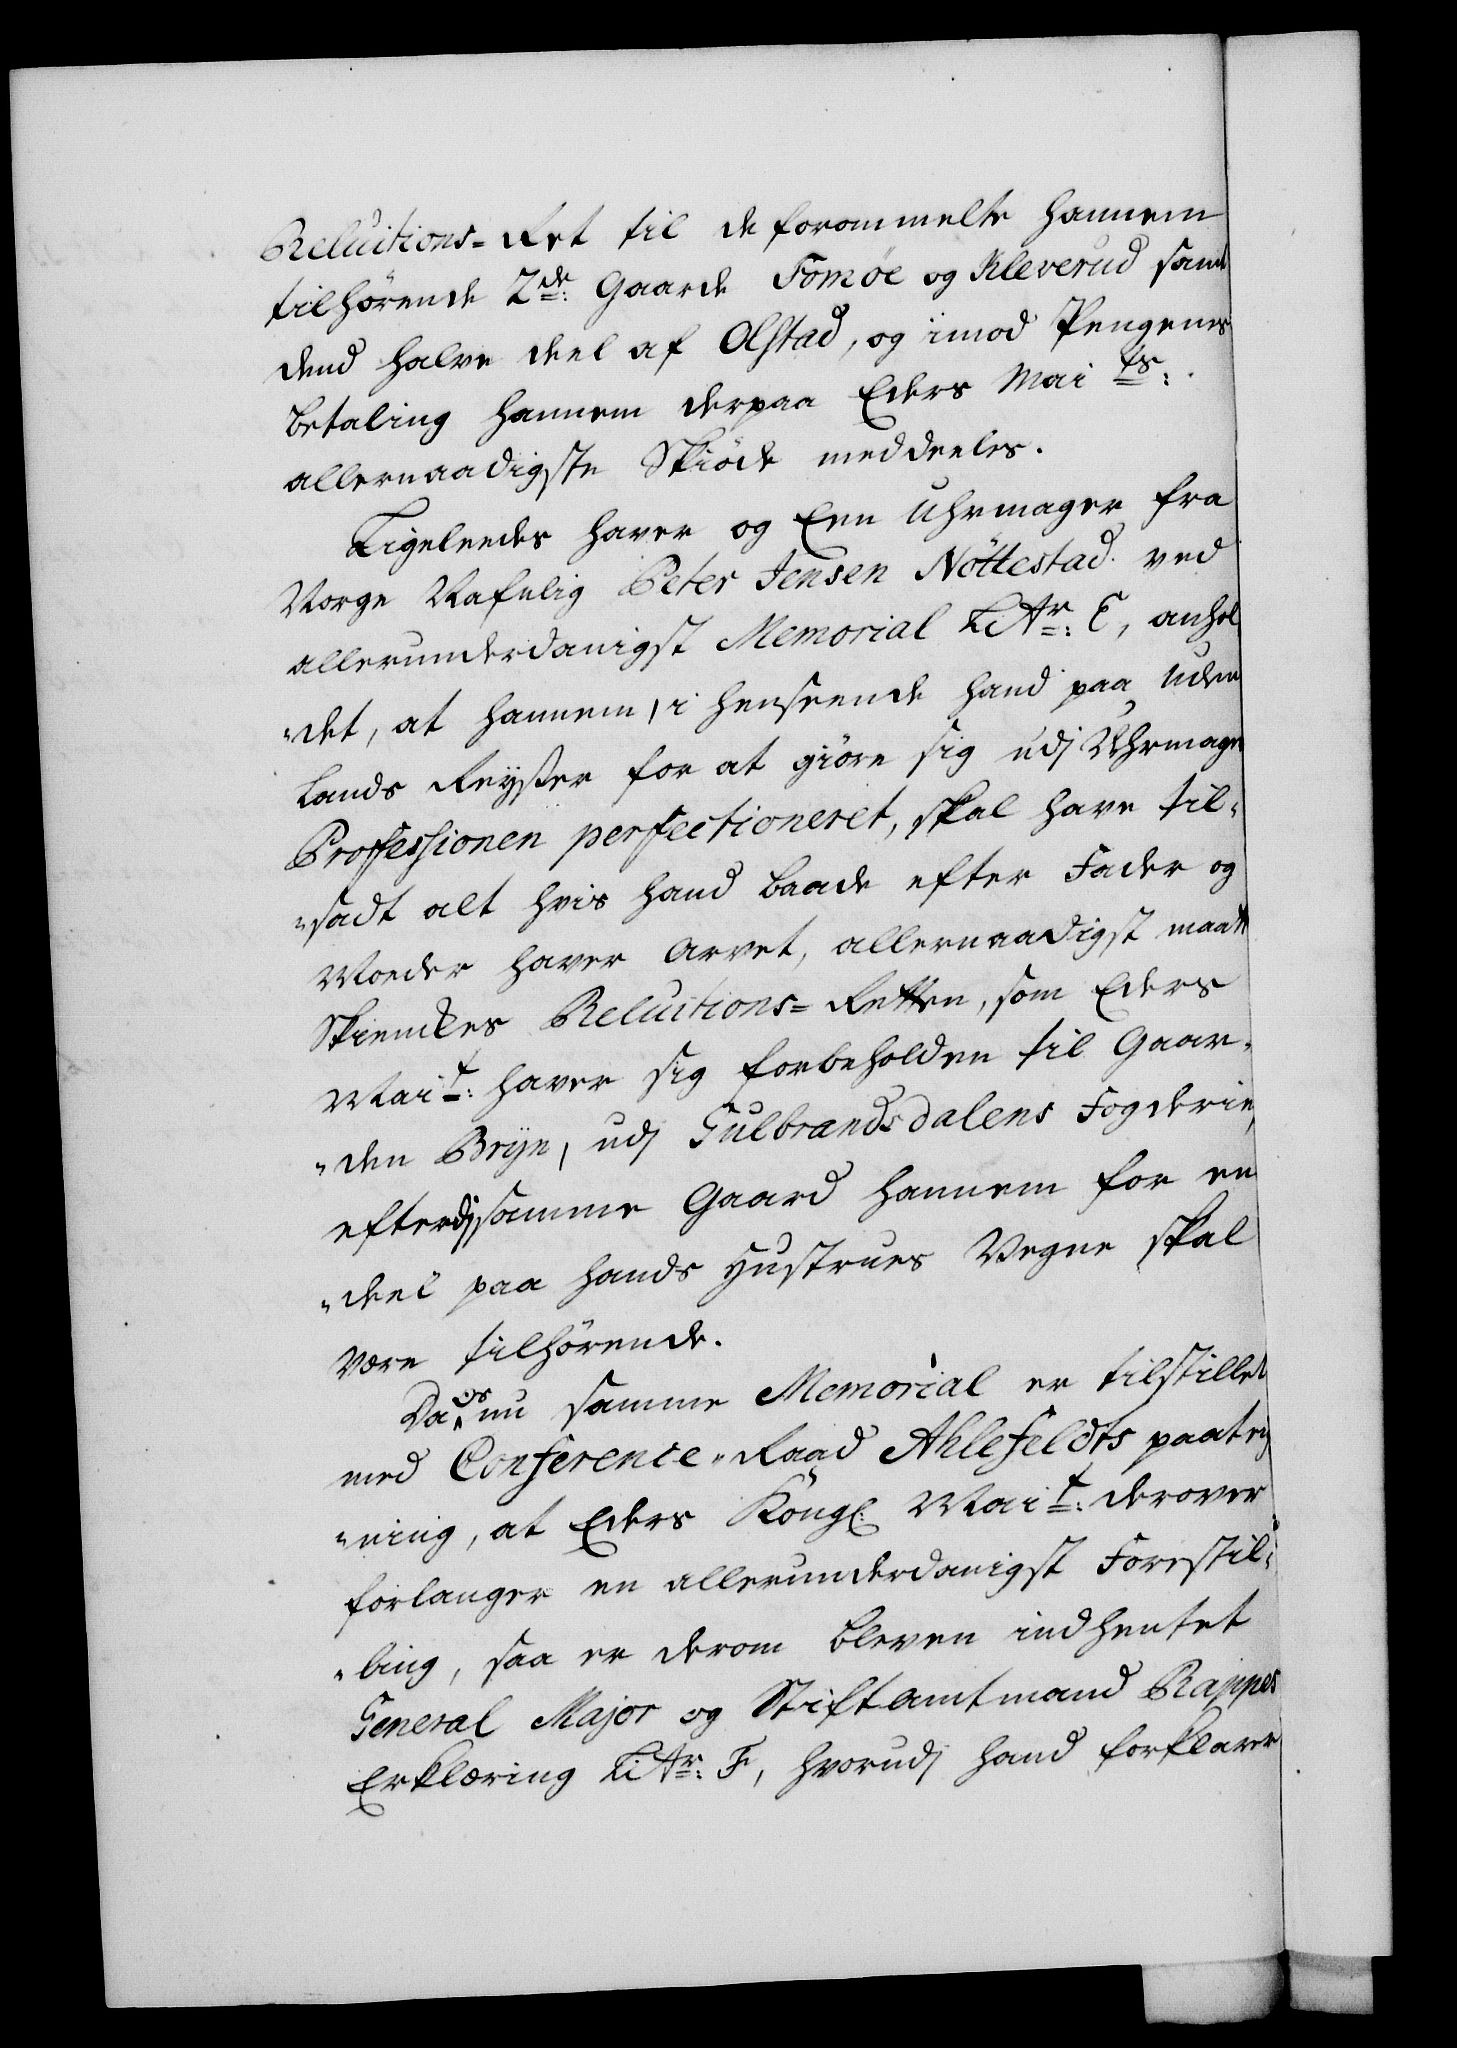 Reluitions-Ret til de forommelte hannem
tilhørende 2de: Gaarde Tomöe og Kleverud samt
dend halve deel af Olstad, og imod Pengenes
betaling hannem derpaa Eders Mai ts:
allernaadigste Skiöde meddeeles.
Ligeleedes haver og Een Uhrmager fra
Norge Nafnlig Peter Jensen Nöttestad ved
allerunderdanigst Memorial Litr: E, anhol
"det, at hannem, i henseende hand paa uden
Lands Reyser for at giöre sig udj Uhrmager
Professionen perfectioneret, skal have til-
"sadt alt hvis hand baade efter Fader og
Moeder haver arvet, allernaadigst maatte
Skienckes Reluitions-Retten, som Eders
Mait: haver sig forbeholden til Gaar-
"den Bryn, udj Gulbrandsdalens Fogderie,
efterdj samme Gaard hannem for en
"deel paa hands Hustrues Vegne skal
være tilhörende.
Da os nu samme Memorial er tilstillet
med Conference-Raad Ahlefeldts paateg
"ning, at Eders Köngl: Mait: derover
forlanger en allerunderdanigst Forestil-
"ling, saa er derom bleven indhentet
General Major og Stiftamtmand Rappes
Erklæring Litr: F, hvorudj hand forklarer